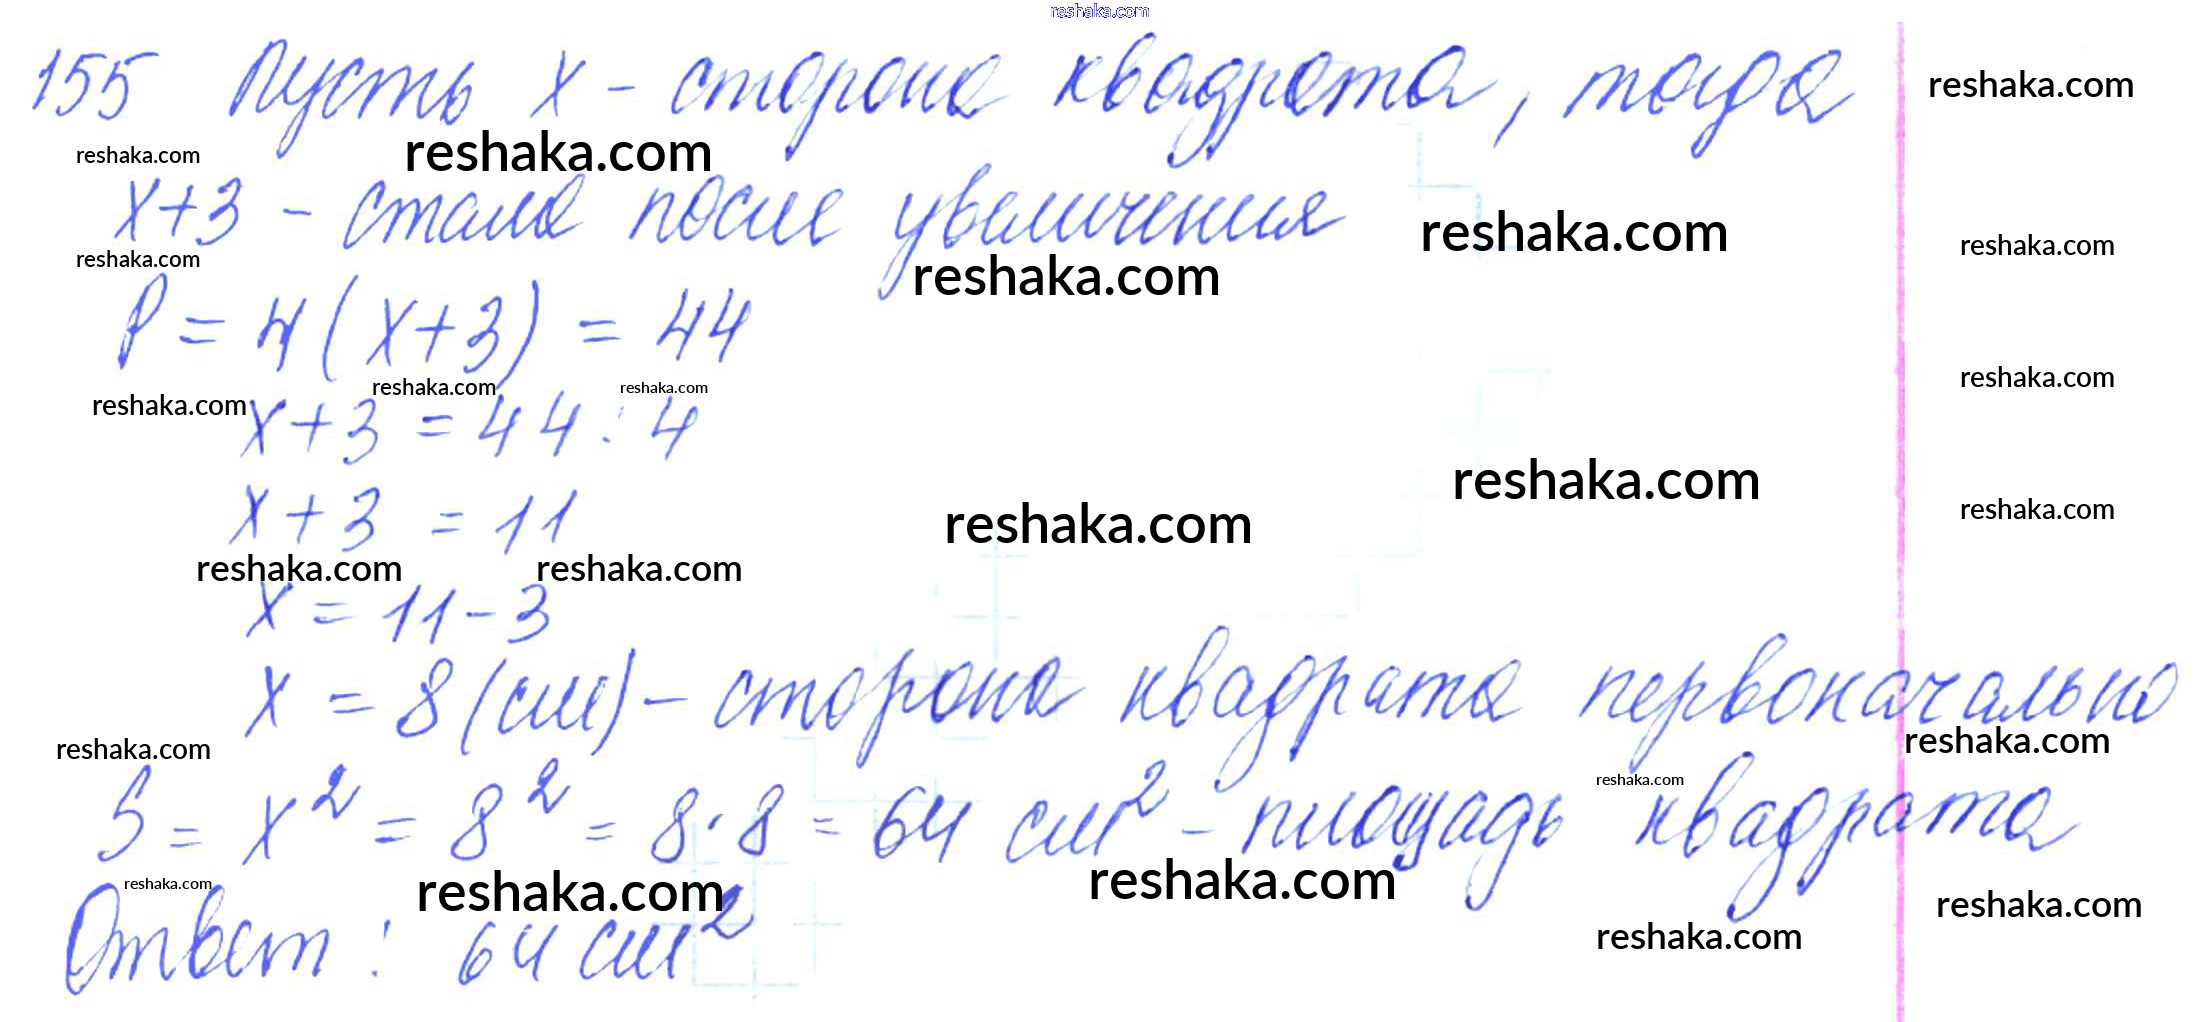 reshaka.com
155 Пусть x - сторона квадрата, тогда reshaka.com
reshaka.com reshaka.com
x+3 - стала после увеличения reshaka.com reshaka.com
reshaka.com reshaka.com
P = 4(x+3) = 44
reshaka.com reshaka.com reshaka.com reshaka.com
x+3 = 44 : 4
reshaka.com
x+3 = 11 reshaka.com reshaka.com
reshaka.com reshaka.com
x = 11-3
x = 8 (см) - сторона квадрата первоначально
reshaka.com reshaka.com
reshaka.com
S = x² = 8² = 8·8 = 64 см² - площадь квадрата
reshaka.com reshaka.com reshaka.com reshaka.com
Ответ : 64 см² reshaka.com